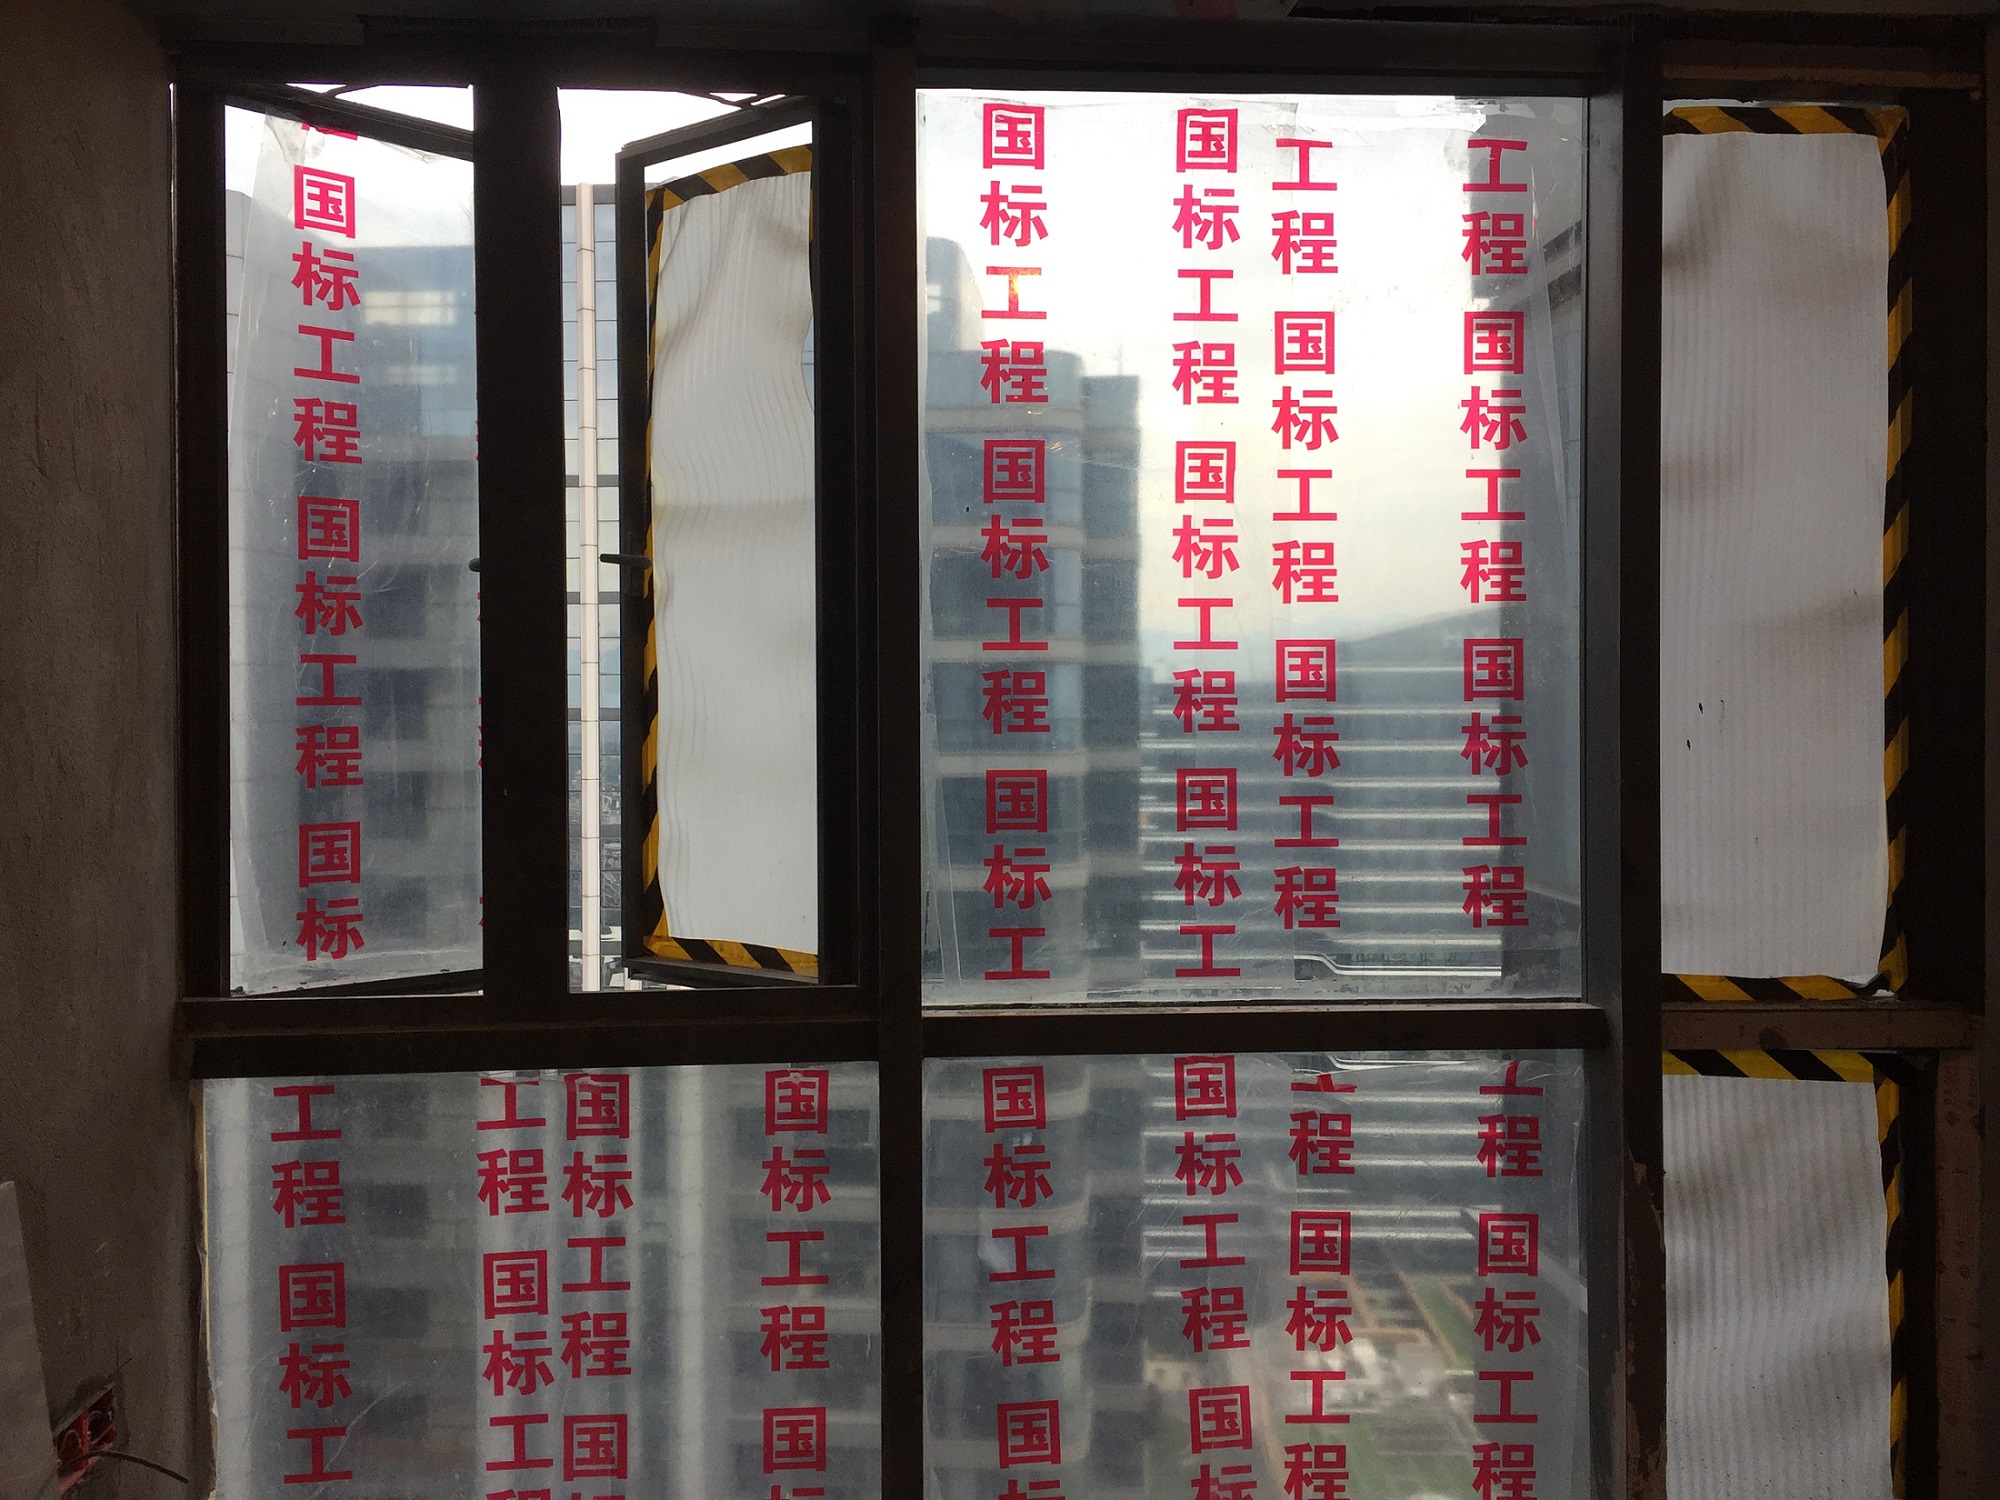 国标工程 国标工程 国标
国标工程 国标工程 国标工
国标工程 国标工程 国标工
工程 国标工程 国标工程
工程 国标工程 国标工程
工程 国标工
工程 国标工
国标工程 国
国标工程 国
国标工程 国
国标工程 国标
工程 国标工程
工程 国标工程